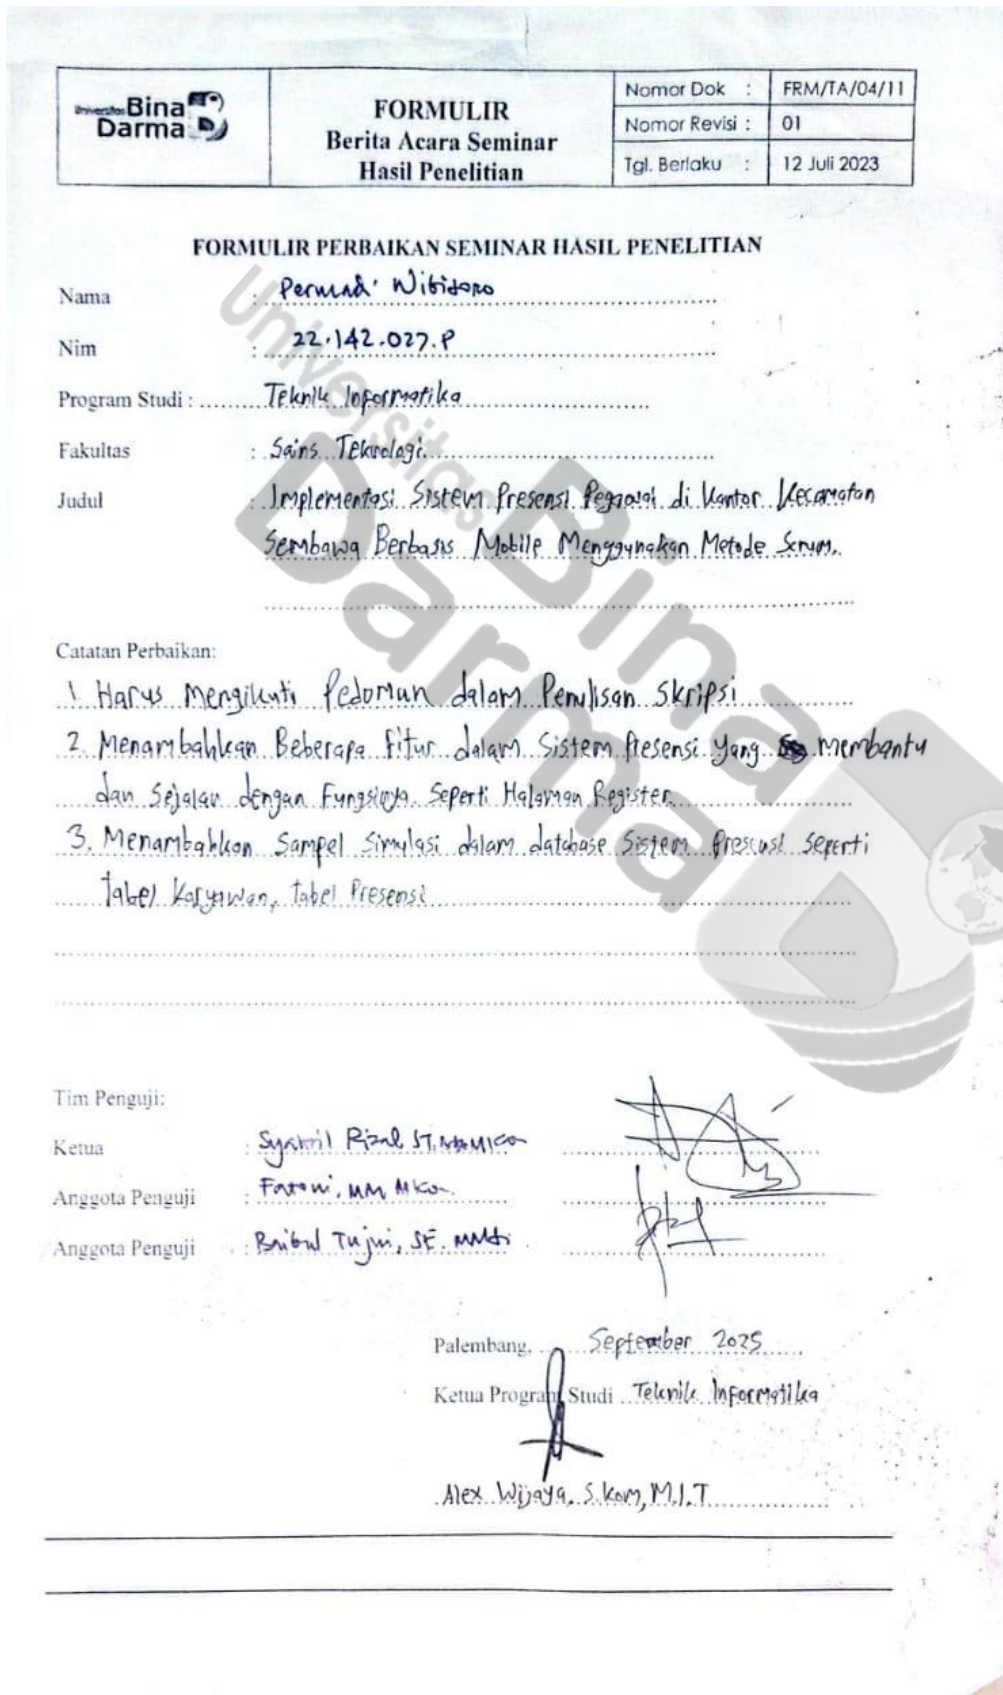 Universitas Bina
Darma
FORMULIR
Berita Acara Seminar
Hasil Penelitian
Nomor Dok : FRM/TA/04/11
Nomor Revisi : 01
Tgl. Berlaku : 12 Juli 2023
FORMULIR PERBAIKAN SEMINAR HASIL PENELITIAN
Nama : Permadi Wibisono
Nim : 22.142.027.P
Program Studi : Teknik Informatika
Fakultas : Sains Teknologi
Judul : Implementasi Sistem Presensi Pegawai di Kantor Kecamatan
Sembawa Berbasis Mobile Menggunakan Metode Scrum.
Catatan Perbaikan:
1. Harus Mengikuti Pedoman dalam Penulisan Skripsi
2. Menambahkan Beberapa Fitur dalam Sistem Presensi yang membantu
dan Sejalan dengan Fungsinya. Seperti Halaman Register.
3. Menambahkan Sampel Simulasi dalam database Sistem Presensi seperti
tabel Karyawan, tabel Presensi
Tim Penguji:
Ketua : Syahril Rizal ST.
Anggota Penguji : Fatoni, MM, MKom.
Anggota Penguji : Baibul Tujni, SE. MMSi
Palembang, September 2025
Ketua Program Studi Teknik Informatika
Alex Wijaya, S.Kom, M.I.T
Universitas
Bina
Darma